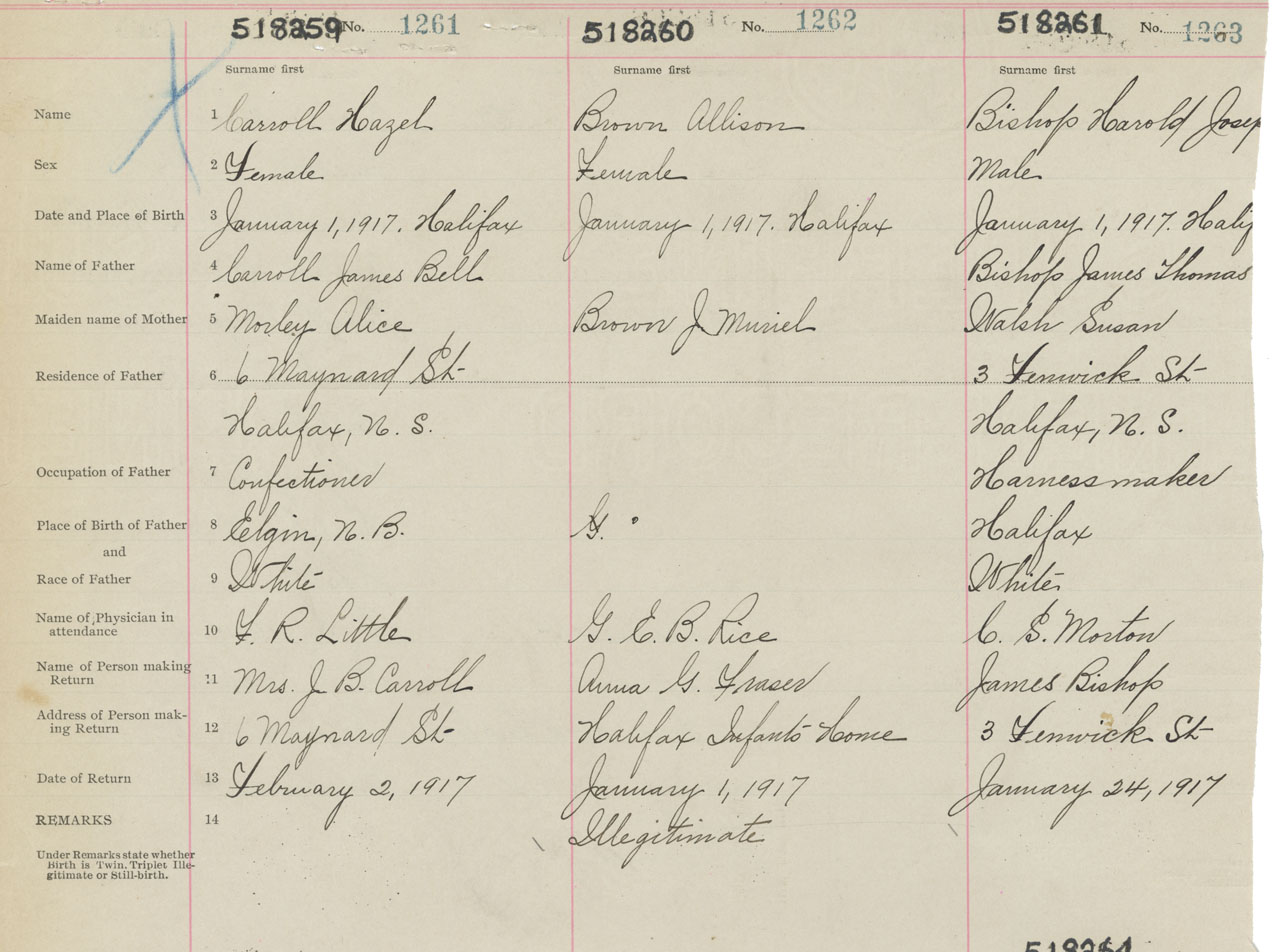 518259 No. 1261 518260 No. 1262 518261 No. 1263
Surname first Surname first Surname first
Name 1 Carroll Hazel Brown Allison Bishop Harold Josep
Sex 2 Female Female Male
Date and Place of Birth 3 January 1, 1917. Halifax January 1, 1917. Halifax January 1, 1917. Halif
Name of Father 4 Carroll James Bell Bishop James Thomas
Maiden name of Mother 5 Morley Alice Brown J Muriel Walsh Susan
Residence of Father 6 6 Maynard St 3 Fenwick St
Halifax, N. S. Halifax, N. S.
Occupation of Father 7 Confectioner Harnessmaker
Place of Birth of Father 8 Elgin, N. B. G. Halifax
and
Race of Father 9 White White
Name of Physician in
attendance 10 F. R. Little G. E. B. Rice C. S. Morton
Name of Person making
Return 11 Mrs. J. B. Carroll Anna G. Fraser James Bishop
Address of Person mak-
ing Return 12 6 Maynard St Halifax Infants Home 3 Fenwick St
Date of Return 13 February 2, 1917 January 1, 1917 January 24, 1917
REMARKS 14 Illegitimate
Under Remarks state whether
Birth is Twin, Triplet Ille-
gitimate or Still-birth.